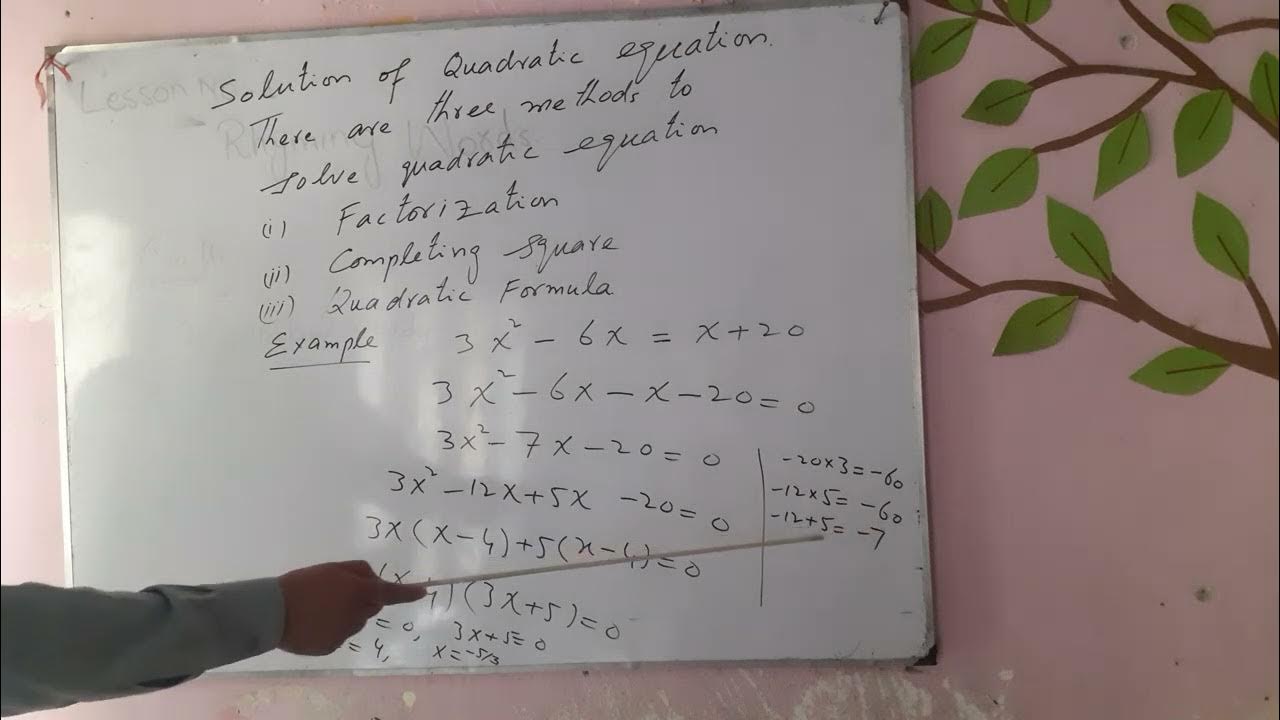 Lesson N
Rhyming Words
Solution of Quadratic equation.
There are three methods to
solve quadratic equation
(i) Factorization
(ii) Completing square
(iii) Quadratic Formula
Example 3x² - 6x = x+20
3x² - 6x - x - 20 = 0
3x² - 7x - 20 = 0
3x² - 12x + 5x - 20 = 0
3x(x-4)+5(x-4)=0
(x 4)(3x+5)=0
=0, 3x+5=0
= 4, x=-5/3
-20×3=-60
-12×5=-60
-12+5=-7